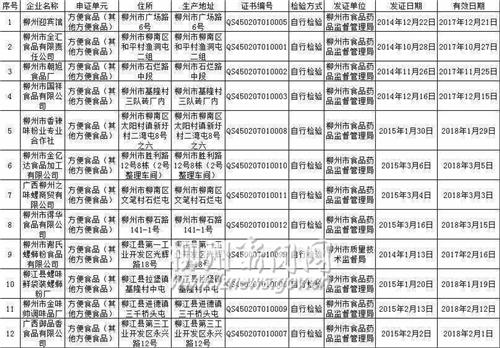 序 企业名称 申证单元 住所 生产地址 证书编号 检验方式 发证单位 发证日期 有效日期
1 柳州迎宾馆 方便食品(其他方便食品) 柳州市广场路6号 柳州市广场路6号 QS450207010005 自行检验 柳州市食品药品监督管理局 2014年12月22日 2017年12月21日
2 柳州市全汇食品有限责任公司 方便食品(其他方便食品) 柳州市柳南区和平村鱼洞屯二组 柳州市柳南区和平村鱼洞屯二组 QS450207010001 自行检验 柳州市食品药品监督管理局 2014年10月28日 2017年10月27日
3 柳州市朝旭食品厂 方便食品(其他方便食品) 柳州市石烂路中段 柳州市石烂路中段 QS450207010002 自行检验 柳州市食品药品监督管理局 2014年11月26日 2017年11月25日
4 柳州市国祥食品有限公司 方便食品(其他方便食品) 柳州市基隆村三队砖厂内 柳州市基隆村三队砖厂内 QS450207010003 自行检验 柳州市食品药品监督管理局 2014年12月16日 2017年12月15日
5 柳州市香辣味粉业专业合作社 方便食品(其他方便食品) 柳州市柳南区太阳村镇新圩村二湾屯8号之六 柳州市柳南区太阳村镇新圩村二湾屯8号之六 QS450207010008 自行检验 柳州市食品药品监督管理局 2015年1月30日 2018年1月29日
6 柳州市金亿达食品加工有限公司 方便食品(其他方便食品) 柳州市胜利路12号8栋(2号整理车间) 柳州市胜利路12号8栋(2号整理车间) QS450207010010 自行检验 柳州市食品药品监督管理局 2015年3月6日 2018年3月5日
7 广西柳州之味螺商贸有限公司 方便食品(其他方便食品) 柳州市柳南区文笔村石烂屯 柳州市柳南区文笔村石烂屯 QS450207010011 自行检验 柳州市食品药品监督管理局 2015年3月4日 2018年3月3日
8 柳州市得华食品有限公司 方便食品(其他方便食品) 柳州市柳石路141-1号 柳州市柳石路141-1号 QS450207010012 自行检验 柳州市食品药品监督管理局 2015年3月16日 2018年3月15日
9 柳州市谢氏螺蛳粉食品有限公司 方便食品(其他方便食品) 柳江县第一工业开发区 路18号 柳江县第一工业开发区 路18号 自行检验 柳州市质量技术监督局 2014年1月13日 2017年2月16日
10 柳江县螺味鲜袋装螺蛳粉厂 方便食品(其他方便食品) 柳江县拉堡镇基隆村中屯 柳江县拉堡镇基隆村中屯 自行检验 柳州市食品药品监督管理局 2015年1月20日 2018年1月19日
11 柳州市金味帅调味品厂 方便食品(其他方便食品) 柳江县进德镇三千桥头屯 柳江县进德镇三千桥头屯 QS450207010009 自行检验 柳州市食品药品监督管理局 2015年2月13日 2018年2月12日
12 广西御品香食品有限公司 方便食品(其他方便食品) 柳江县第三工业开发区永兴路12号 柳江县第三工业开发区永兴路12号 QS450207010007 自行检验 柳州市食品药品监督管理局 2015年2月2日 2018年2月1日
柳州新闻网